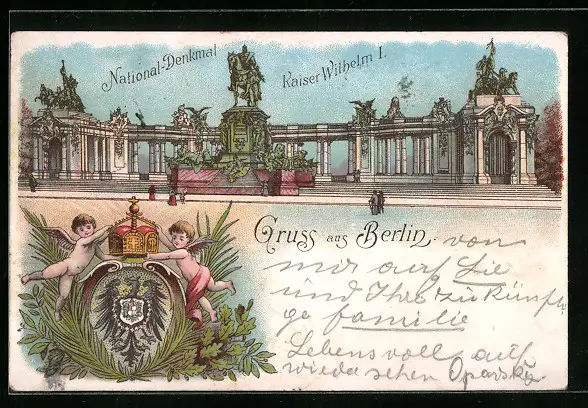 National-Denkmal Kaiser Wilhelm I.
Gruss aus Berlin. von
mir auf Sie
und Ihre zukünfti
ge familie
Lebens voll auf
wieda sehen